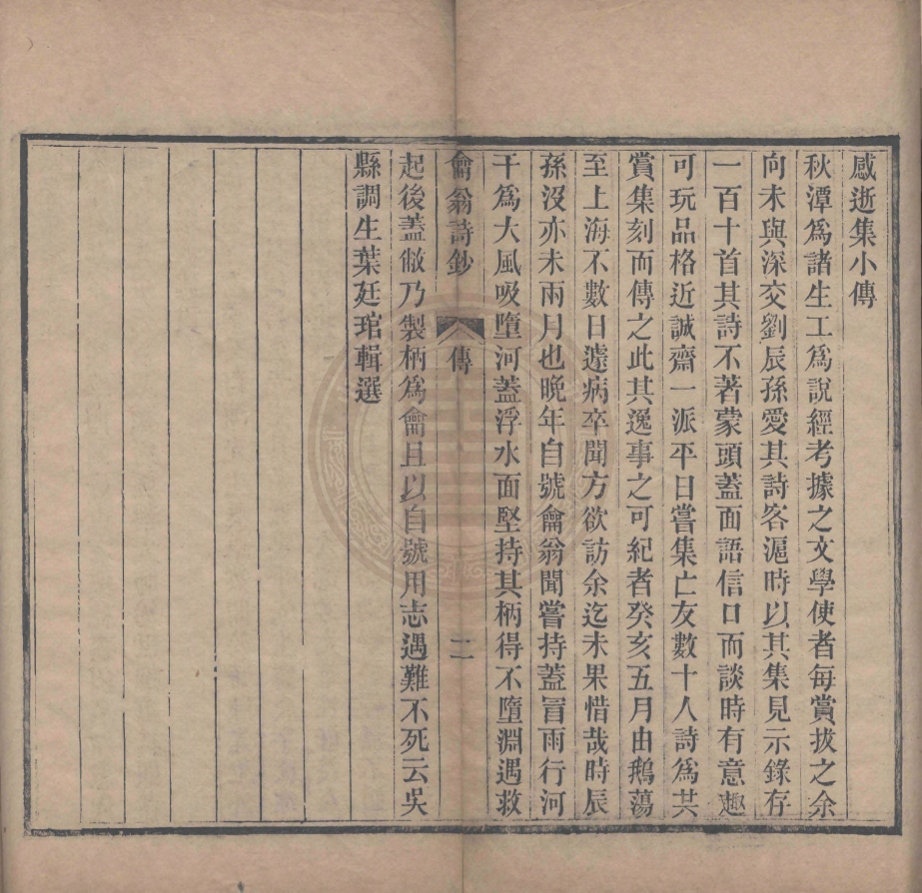 感逝集小傳
秋潭爲諸生工爲說經考據之文學使者每賞拔之余
向未與深交劉辰孫愛其詩客滬時以其集見示錄存
一百十首其詩不著蒙頭蓋面語信口而談時有意趣
可玩品格近誠齋一派平日嘗集亡友數十人詩爲其
賞集刻而傳之此其逸事之可紀者癸亥五月由鵝蕩
至上海不數日遽病卒聞方欲訪余迄未果惜哉時辰
孫沒亦未兩月也晚年自號龠翁聞嘗持蓋冒雨行河
干爲大風吸墮河蓋浮水面堅持其柄得不墮淵遇救
龠翁詩鈔 傳 二
起後蓋敝乃製柄爲龠且以自號用志遇難不死云吳
縣調生葉廷琯輯選